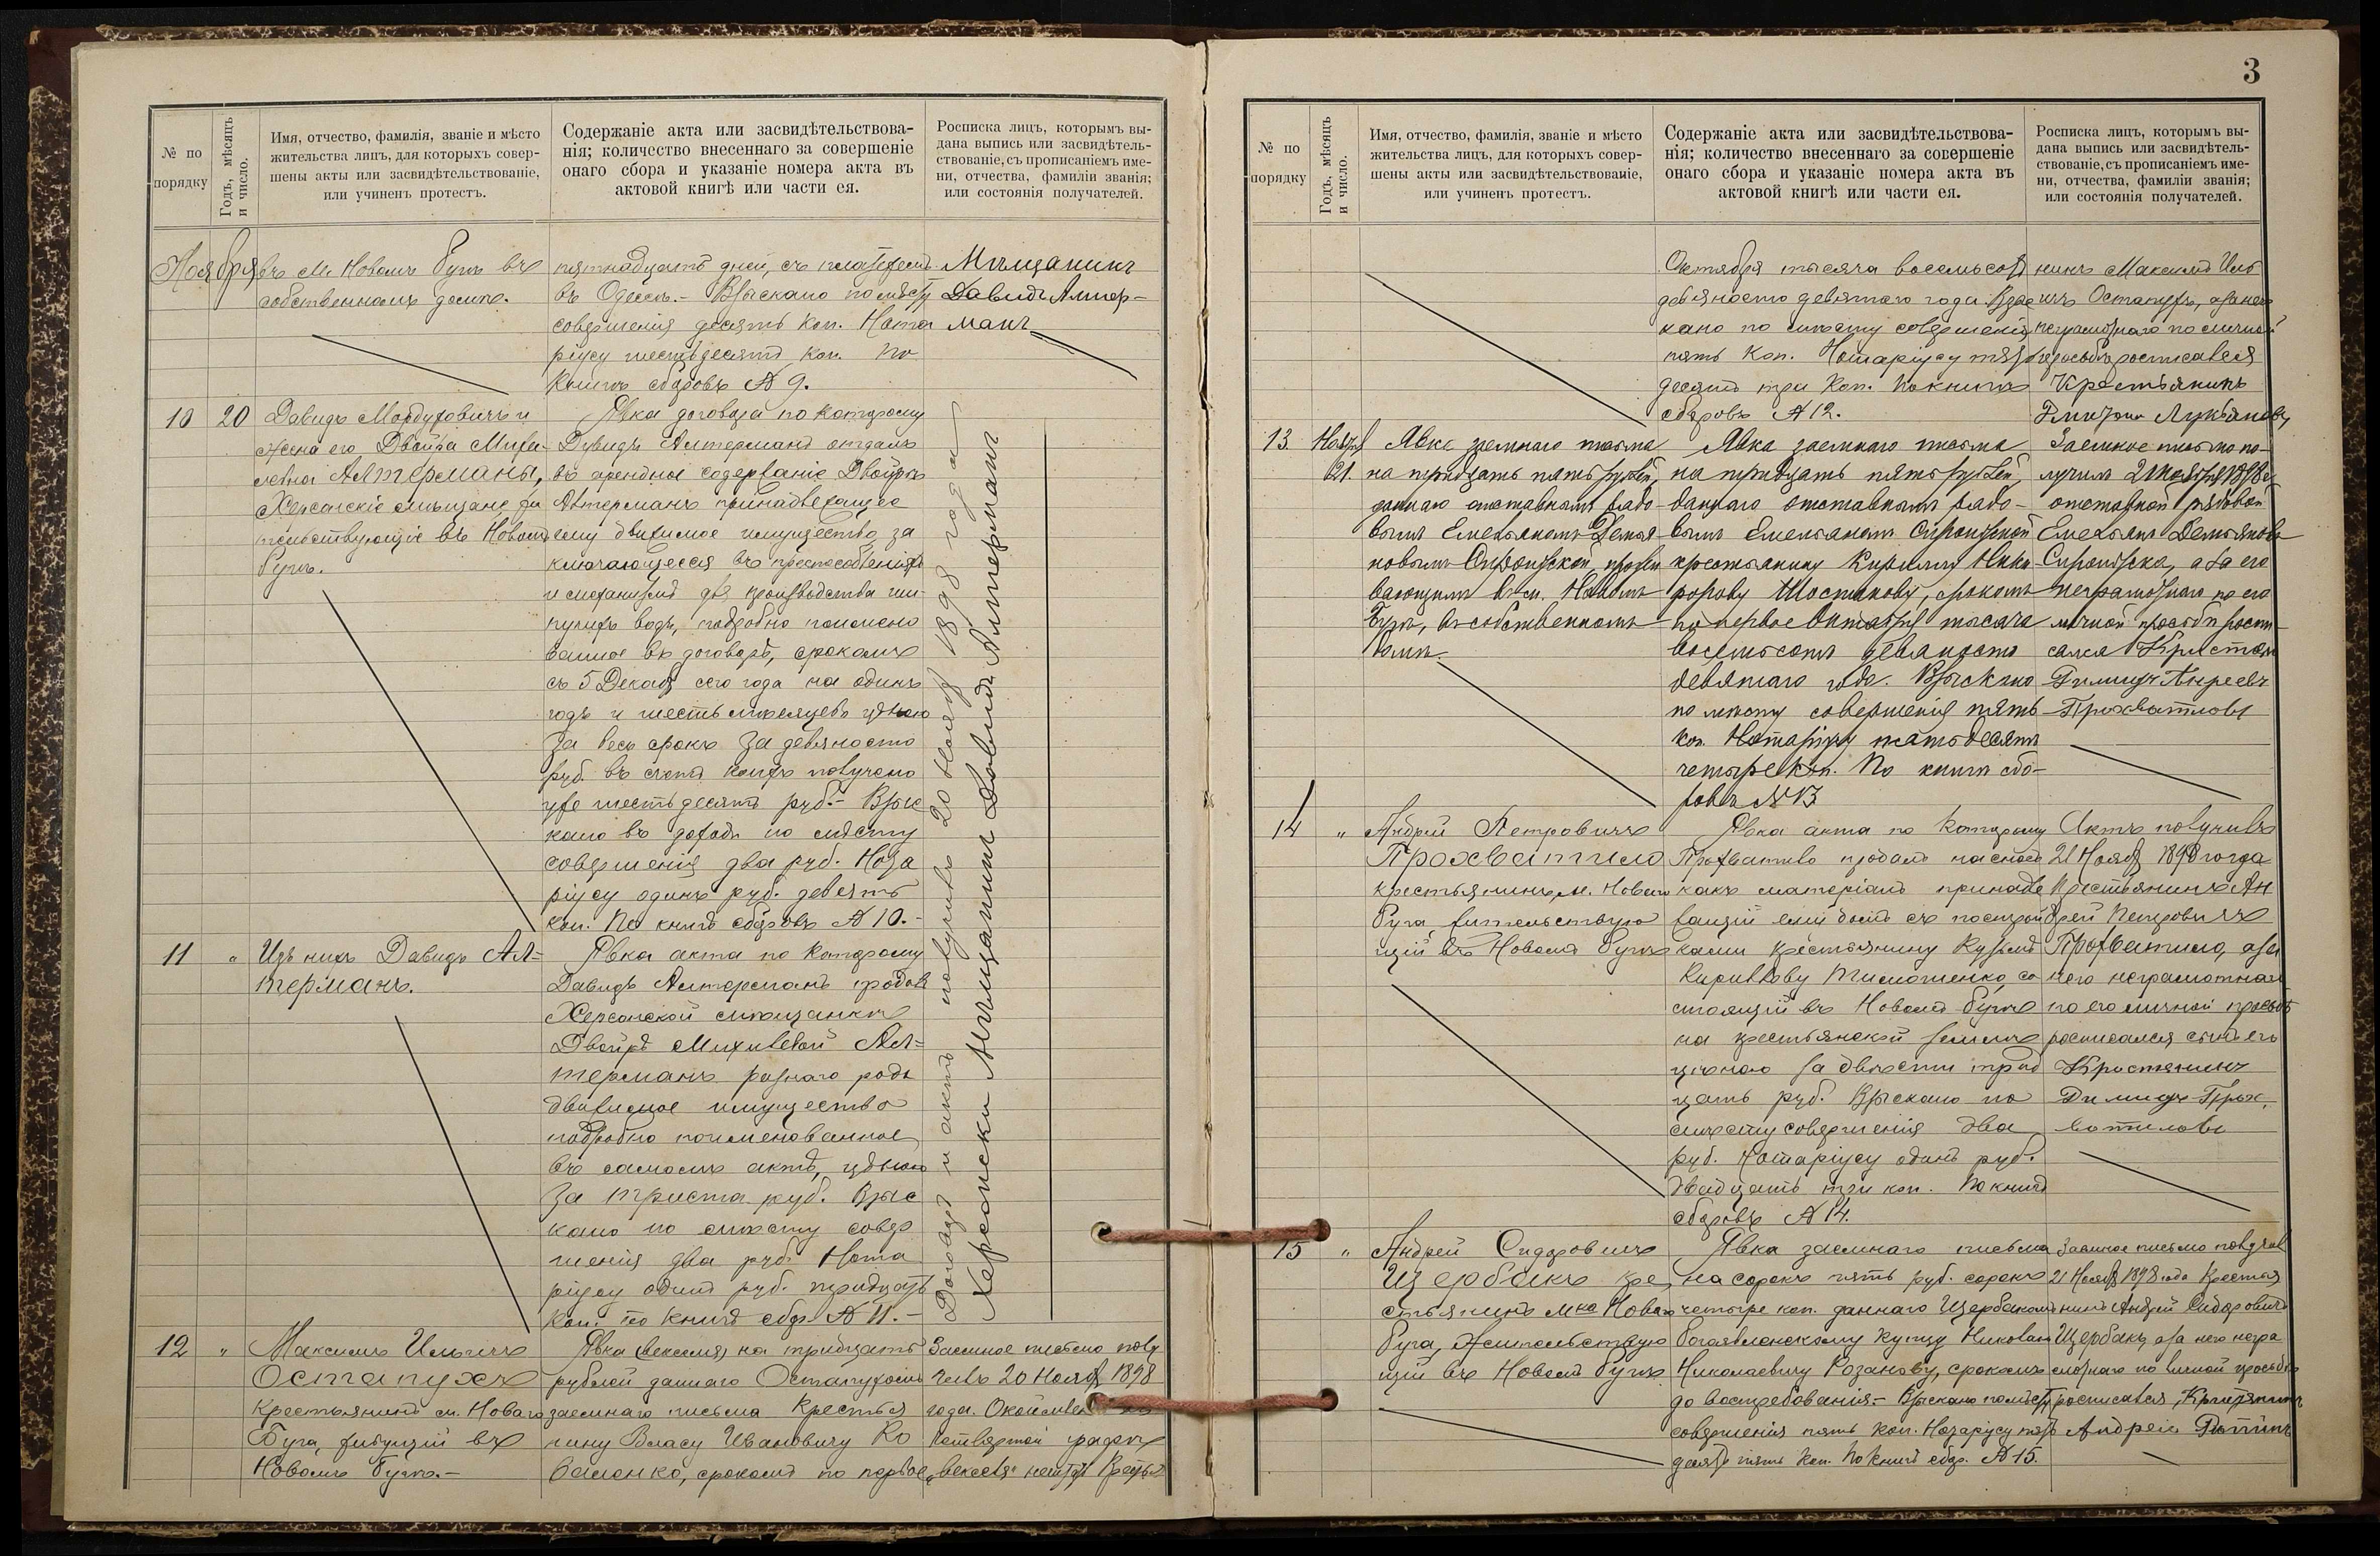 № по порядку
Годъ, мѣсяцъ и число.
Имя, отчество, фамилія, званіе и мѣсто
жительства лицъ, для которыхъ совер-
шены акты или засвидѣтельствованіе,
или учиненъ протестъ.
Содержаніе акта или засвидѣтельствова-
нія; количество внесеннаго за совершеніе
онаго сбора и указаніе номера акта въ
актовой книгѣ или части ея.
Росписка лицъ, которымъ вы-
дана выпись или засвидѣтель-
ствованіе, съ прописаніемъ име-
ни, отчества, фамиліи званія;
или состоянія получателей.
Ноября
въ м. Новомъ Бугѣ въ
собственномъ домѣ.
пятнадцать дней, съ платежемъ
въ Одессѣ. - Взыскано по мѣсту
совершенія десять коп. Нота
ріусу шестьдесятъ коп. По
книгѣ сборовъ № 9.
Мѣщанинъ
Давидъ Алтер-
манъ
10
20
Давидъ Мордуховичъ и
жена его Двойра Михе-
левна Алтерманы,
Херсонскіе мѣщане, жи
тельствующіе въ Новомъ
Бугѣ.
Явка договора по которому
Давидъ Алтерманъ отдалъ
въ арендное содержаніе Двойрѣ
Алтерманъ принадлежащее
ему движимое имущество, за
ключающееся въ приспособленіяхъ
и механизмѣ для производства ши-
пучихъ водъ, подробно поимено
ванное въ договорѣ, срокомъ
съ 5 Декабря сего года на одинъ
годъ и шесть мѣсяцевъ цѣною
за весь срокъ за девяносто
руб. въ счетъ коихъ получено
уже шестьдесятъ руб. - Взыс
кано въ доходъ по мѣсту
совершенія два руб. Нота
ріусу одинъ руб. девять
коп. По книгѣ сборовъ № 10. -
11
"
Изъ нихъ Давидъ Ал-
терманъ.
Явка акта по которому
Давидъ Алтерманъ продалъ
Херсонской мѣщанкѣ
Двойрѣ Михилевой Ал-
терманъ разнаго рода
движимое имущество
подробно поименованное
въ самомъ актѣ, цѣною
за триста руб. Взыс
кано по мѣсту совер
шенія два руб. Нота
ріусу одинъ руб. тридцать
коп. По книгѣ сбор. № 11. -
Договоръ и актъ получилъ 20 Ноября 1898 года
Херсонски Мѣщанинъ Давидъ Алтерманъ
12
"
Максимъ Ильичъ
Остапухъ
крестьянинъ м. Новаго
Буга, живущій въ
Новомъ Бугѣ. -
Явка (векселя) на тридцать
рублей даннаго Остапухомъ
заемнаго письма крестья
нину Власу Ивановичу Ко
валенко, срокомъ по первое
Заемное письмо полу
чилъ 20 Ноября 1898
года.
четвертой графы
"векселя"
3
№ по порядку
Годъ, мѣсяцъ и число.
Имя, отчество, фамилія, званіе и мѣсто
жительства лицъ, для которыхъ совер-
шены акты или засвидѣтельствованіе,
или учиненъ протестъ.
Содержаніе акта или засвидѣтельствова-
нія; количество внесеннаго за совершеніе
онаго сбора и указаніе номера акта въ
актовой книгѣ или части ея.
Росписка лицъ, которымъ вы-
дана выпись или засвидѣтель-
ствованіе, съ прописаніемъ име-
ни, отчества, фамиліи званія;
или состоянія получателей.
Октября тысяча восемьсотъ
девяносто девятаго года. Взыс
кано по мѣсту совершенія
пять коп. Нотаріусу пять
десятъ три коп. По книгѣ
сборовъ № 12.
нинъ Максимъ Иль
ичъ Остапухъ, а за него
неграмотнаго по личной
просьбѣ росписался
Крестьянинъ
Лукьяновъ
13.
Ноября
21.
Явка заемнаго письма
на тридцать пять рублей,
даннаго отставнымъ рядо-
вымъ Емельяномъ Демья
новымъ Сиротской, прожи
вающимъ въ м. Новомъ
Бугѣ, въ собственномъ
домѣ.
Явка заемнаго письма
на тридцать пять рублей,
даннаго отставнымъ рядо-
вымъ Емельяномъ Сиротской
крестьянину Кириллу Ники
форову Шостакову, срокомъ
по первое Октября тысяча
восемьсотъ девяносто
девятаго года. Взыскано
по мѣсту совершенія пять
коп. Нотаріусу пятьдесятъ
четыре коп. По книгѣ сбо-
ровъ № 13
Заемное письмо по-
лучилъ 21 Ноября 1898 г.
отставной рядовой
Емельянъ Демьяновъ
Сиротска, а за его
неграмотнаго по его
личной просьбѣ роспи-
сался Крестян
Прохватиловъ
14
"
Андрей Петровичъ
Прохватило
крестьянинъ, м. Новаго
Буга, жительствую
щій въ Новомъ Бугѣ
Явка акта по которому
Прохватило продалъ на сносъ
какъ матеріалъ принадле
жащій ему домъ съ построй
ками крестьянину Кузьмѣ
Кириллову Тимошенко, со
стоящій въ Новомъ Бугѣ
на крестьянской землѣ
цѣною за двѣсти трид
цать руб. Взыскано по
мѣсту совершенія два
руб. Нотаріусу одинъ руб.
двадцать три коп. По книгѣ
сборовъ № 14.
Актъ получилъ
21 Ноября 1898 года
Крестьянинъ Ан
дрей Петровичъ
Прохватило, а за
него неграмотнаго
по его личной просьбѣ
росписался сынъ его
Кристянинъ
Прох
ватиловъ
15
"
Андрей Сидоровичъ
Щербакъ кре
стьянинъ м-ка Новаго
Буга, жительствую
щій въ Новомъ Бугѣ
Явка заемнаго письма
на сорокъ пять руб. сорокъ
четыре коп. даннаго Щербакомъ
Богоявленскому купцу Николаю
Николаевичу Розанову, срокомъ
до востребованія. - Взыскано по мѣсту
совершенія пять коп. Нотаріусу пять
десятъ пять коп. По книгѣ сбор. № 15.
Заемное письмо получилъ
21 Ноября 1898 года Крестья
нинъ Андрей Сидоровичъ
Щербакъ, а за него негра
мотнаго по личной просьбѣ
росписался,
Андреи